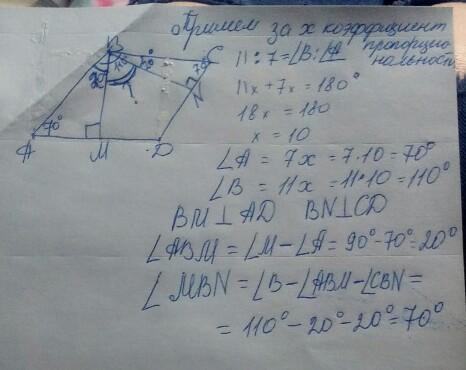 Примем за x коэффициент
пропорцио
нальности
11:7=∠B:∠A
11x+7x=180°
18x=180
x=10
∠A=7x=7·10=70°
∠B=11x=11·10=110°
BM⊥AD BN⊥CD
∠ABM=∠M-∠A=90°-70°=20°
∠MBN=∠B-∠ABM-∠CBN=
=110°-20°-20°=70°
B
C
N
70°
A
M
D